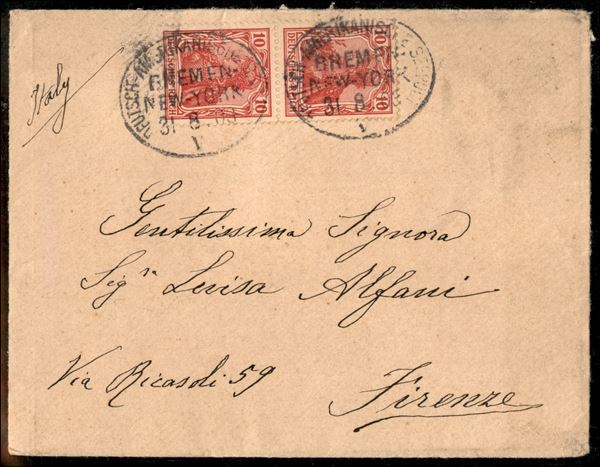 Italy
DEUTSCH-AMERIKANISCHE
BREMEN-
NEW-YORK
31 8
1
10 10
DEUTSCH-AMERIKANISCHE SEEPOST
BREMEN-
NEW-YORK
31 8
1
10 10
Gentilissima Signora
Sigra Luisa Alfani
Via Ricasoli 59
Firenze